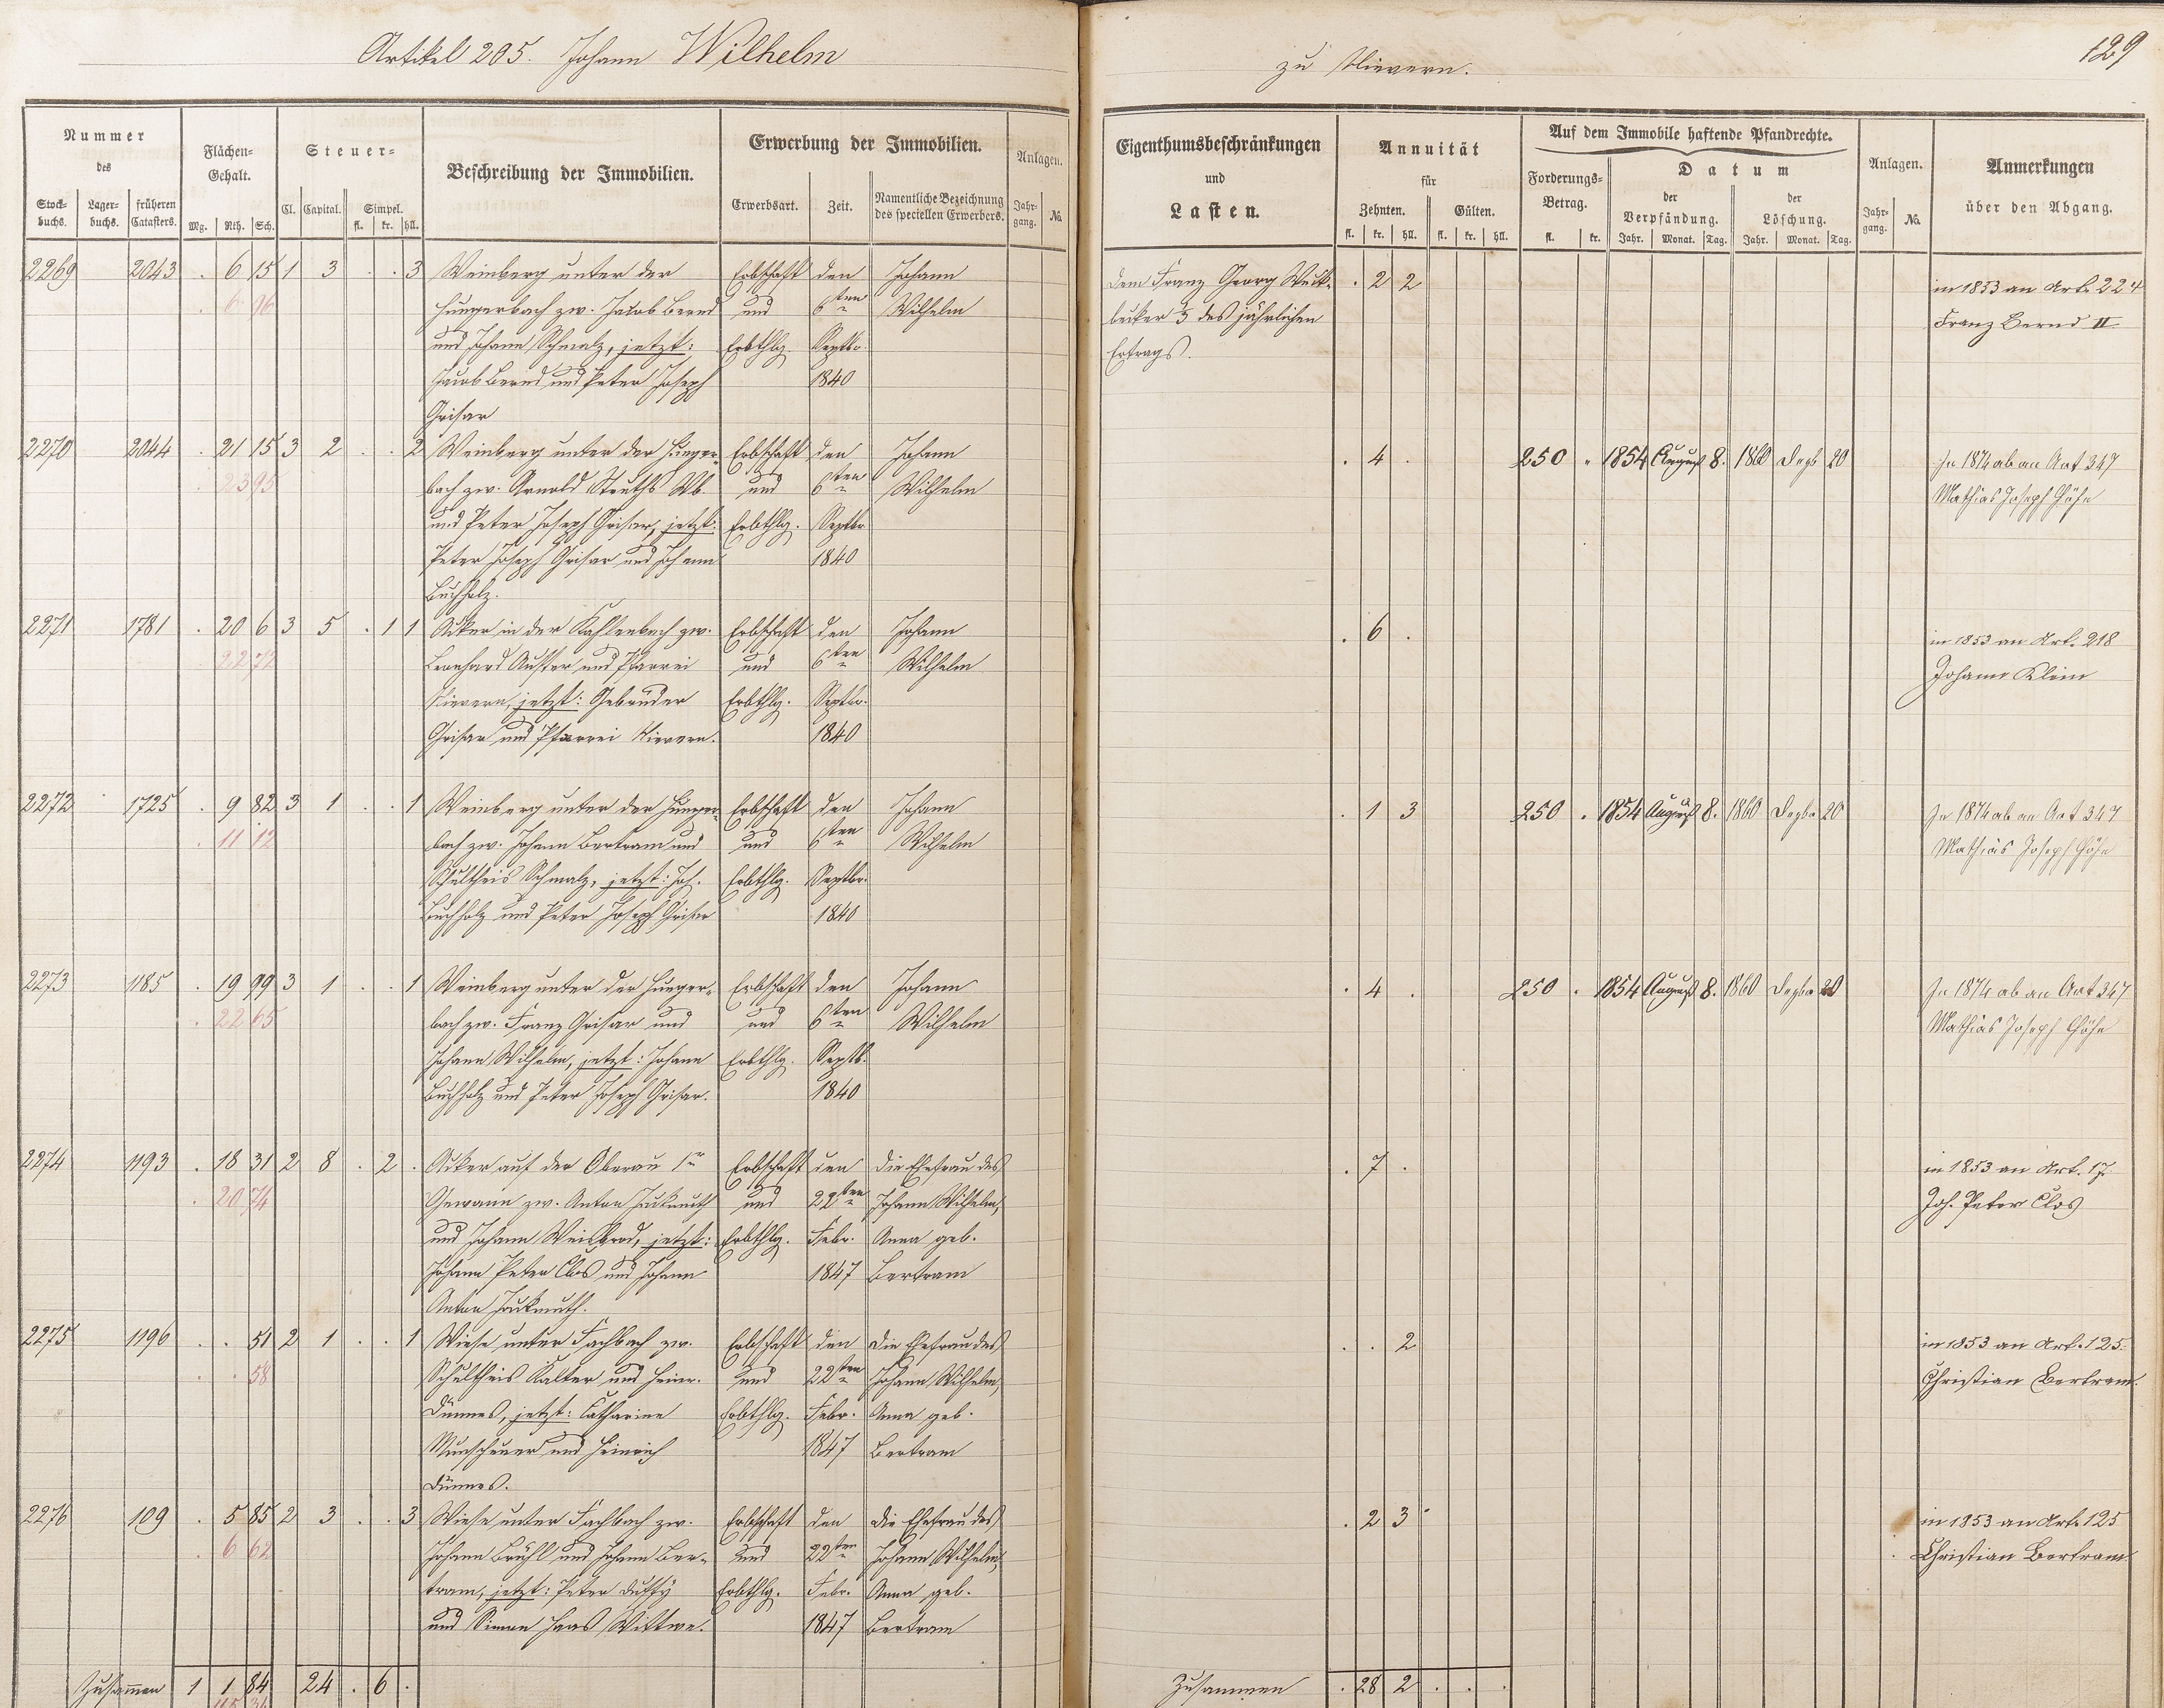 Artikel 205. Johann Wilhelm
zu Nievern.
129
Nummer
des
Stock-
buchs.
Lager-
buchs.
früheren
Catasters.
Flächen-
Gehalt.
Mg. Rth. Sch.
Steuer-
Cl. Capital. Simpel.
fl. kr. hll.
Beschreibung der Immobilien.
Erwerbung der Immobilien.
Erwerbsart. Zeit.
Namentliche Bezeichnung
des speciellen Erwerbers.
Anlagen.
Jahr-
gang. No.
Eigenthumsbeschränkungen
und
Lasten.
Annuität
für
Zehnten. Gülten.
fl. kr. hll. fl. kr. hll.
Auf dem Immobile haftende Pfandrechte.
Forderungs-
Betrag.
fl. kr.
Datum
der
Verpfändung.
Jahr. Monat. Tag.
der
Löschung.
Jahr. Monat. Tag.
Anlagen.
Jahr-
gang. No.
Anmerkungen
über den Abgang.
2269 2043 . 6 15 1 3 . . 3 Weinberg unter der Erbschaft den Johann
. 6 96 Hungerbach zw. Jacob Bernd und 6ten Wilhelm
und Johann Schmalz, jetzt: Erbthlg. Septbr.
Jacob Bernd und Peter Joseph 1840
Grisar
dem Franz Georg . 2 2 in 1853 an Art. 224
des jährlichen Franz Bernd II
Ertrags.
2270 2044 . 21 15 3 2 . . 2 Weinberg unter der Hunger- Erbschaft den Johann
. 23 95 bach zw. Arnold Struths Wb. und 6ten Wilhelm
und Peter Joseph Grisar, jetzt: Erbthlg. Septbr.
Peter Joseph Grisar und Johann 1840
Buchholz.
. 4 . 250 . 1854 August 8. 1860 Dezb 20 In 1874 ab an Art 347
Mathias Joseph Höhn
2271 1781 . 20 6 3 5 . 1 1 Acker in der Kahlenbach zw. Erbschaft den Johann
. 22 72 Leonhard und Pfarrei und 6ten Wilhelm
Nievern, jetzt: Gebrüder Erbthlg. Septbr.
Grisar und Pfarrei Nievern. 1840
. 6 . in 1853 an Art. 218
Johann Klein
2272 1725 . 9 82 3 1 . . 1 Weinberg unter der Hunger- Erbschaft den Johann
. 11 12 bach zw. Johann Bertram und und 6ten Wilhelm
Schultheis Schmalz, jetzt: Joh. Erbthlg. Septbr.
Buchholz und Peter Joseph Grisar 1840
. 1 3 250 . 1854 August 8. 1860 Dezbr 20 In 1874 ab an Art 347
Mathias Joseph Höhn
2273 1185 . 19 99 3 1 . . 1 Weinberg unter der Hunger- Erbschaft den Johann
. 22 65 bach zw. Franz Grisar und und 6ten Wilhelm
Johann Wilhelm, jetzt: Johann Erbthlg. Septb.
Buchholz und Peter Joseph Grisar. 1840
. 4 . 250 . 1854 August 8. 1860 Dezbr 20 In 1874 ab an Art 347
Mathias Joseph Höhn
2274 1193 . 18 31 2 8 . 2 . Acker auf der Oberau 1r Erbschaft den die Ehefrau des
. 20 74 Gewann zw. Anton und 22ten Johann Wilhelm,
und Johann Weisbrod, jetzt: Erbthlg. Febr. Anna geb.
Johann Peter Clos und Johann 1847 Bertram
Anton
. 7 . in 1853 an Art. 17.
Joh. Peter Clos
2275 1196 . . 51 2 1 . . 1 Wiese unter Fachbach zw. Erbschaft den die Ehefrau des
. . 58 Schultheis Kalter und Heinr. und 22ten Johann Wilhelm,
Dünnes, jetzt: Catharine Erbthlg. Febr. Anna geb.
und Heinrich 1847 Bertram
Dünnes.
. . 2 in 1853 an Art. 125.
Christian Bertram.
2276 109 . 5 85 2 3 . . 3 Wiese unter Fachbach zw. Erbschaft den die Ehefrau des
. 6 62 Johann Brühl und Johann Ber- und 22ten Johann Wilhelm,
tram, jetzt: Peter Erbthlg. Febr. Anna geb.
und Simon Haas Wittwe. 1847 Bertram
. 2 3 in 1853 an Art. 125
Christian Bertram
Zusammen 1 1 84 24 . 6 .
Zusammen . 28 2 . . .